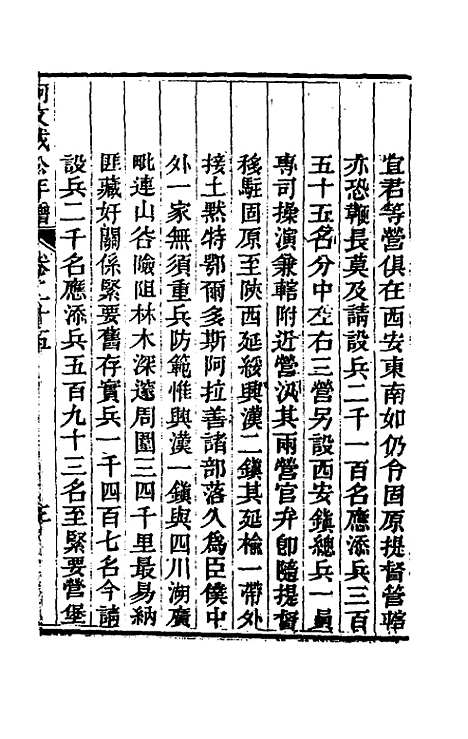 宜君等營俱在西安東南如仍令固原提督管轄
亦恐鞭長莫及請設兵二千一百名應添兵三百
五十五名分中左右三營另設西安鎮總兵一員
專司操演兼轄附近營汛其兩營官弁卽隨提督
移駐固原至陝西延綏興漢二鎮其延榆一帶外
接土默特鄂爾多斯阿拉善諸部落久爲臣僕中
外一家無須重兵防範惟興漢一鎮與四川湖廣
毗連山谷險阻林木深邃周圍三四千里最易納
匪藏奸關係緊要舊存實兵一千四百七名今請
設兵二千名應添兵五百九十三名至緊要營堡
阿文成公年譜 卷二十五